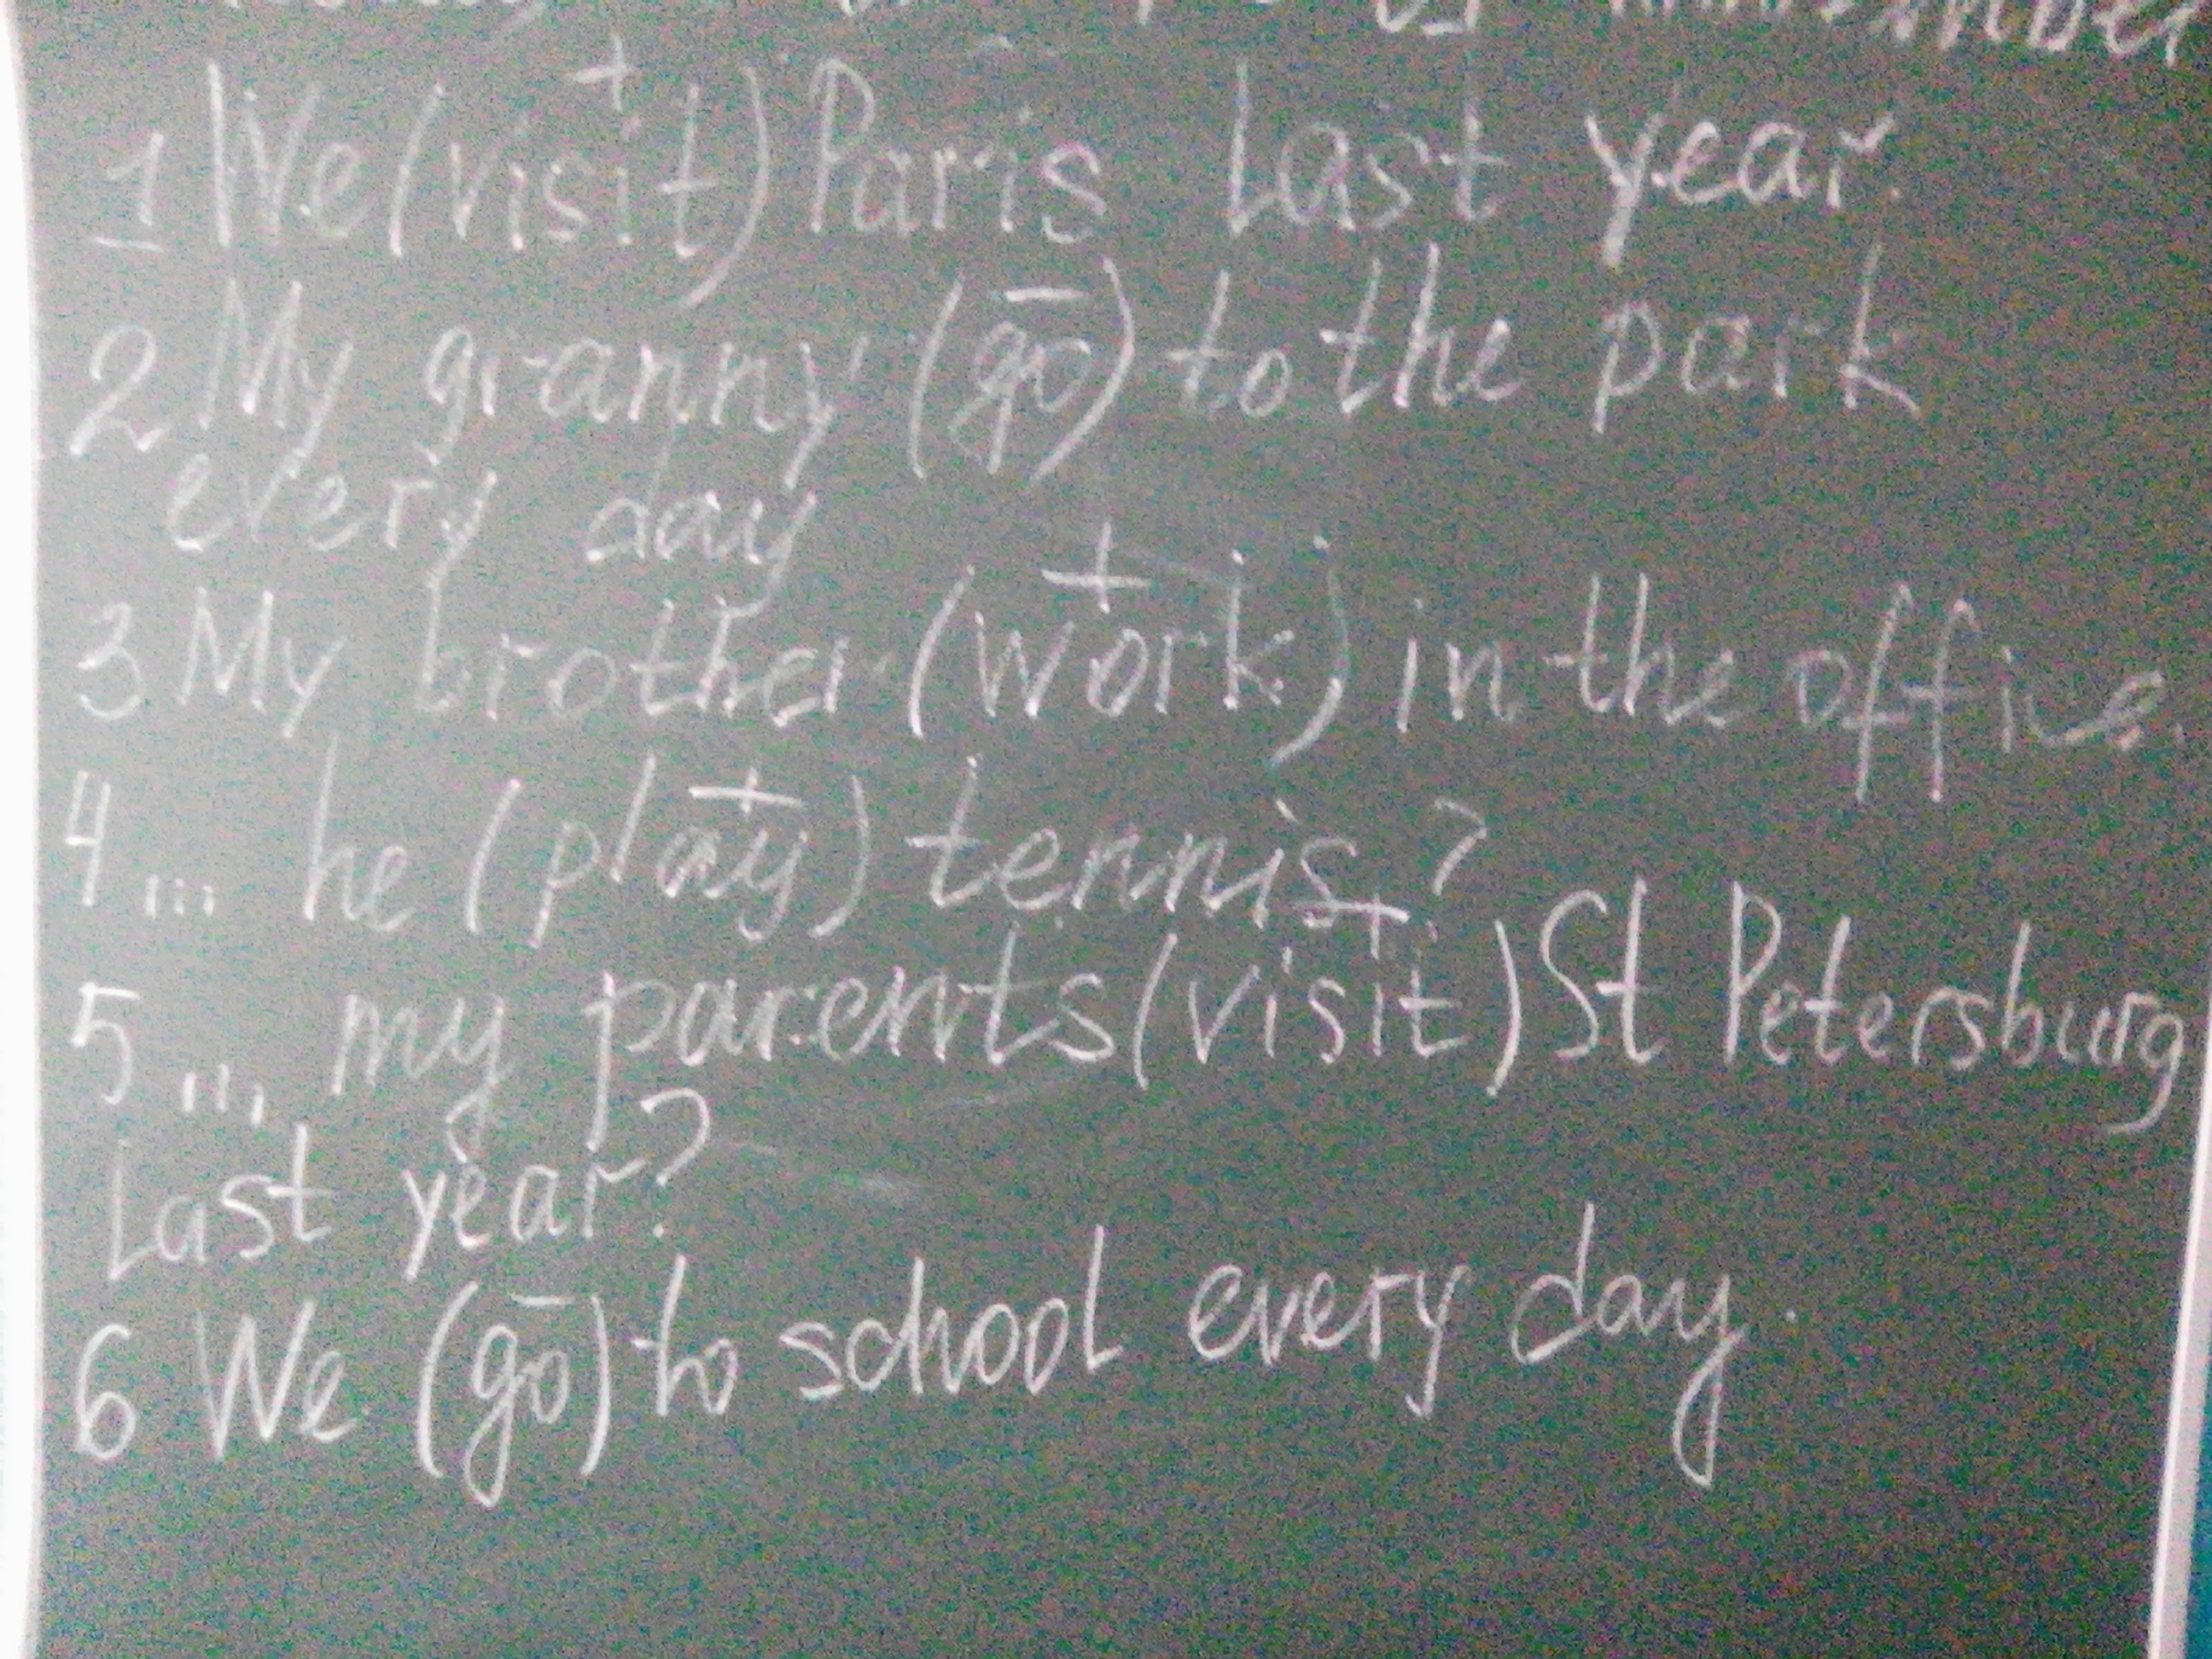 1 We (visit) Paris Last year.
2 My granny (go) to the park
every day
3 My brother (work) in the office.
4 ... he (play) tennis?
5 ... my parents (visit) St Petersburg
Last year?
6 We (go) to school every day.